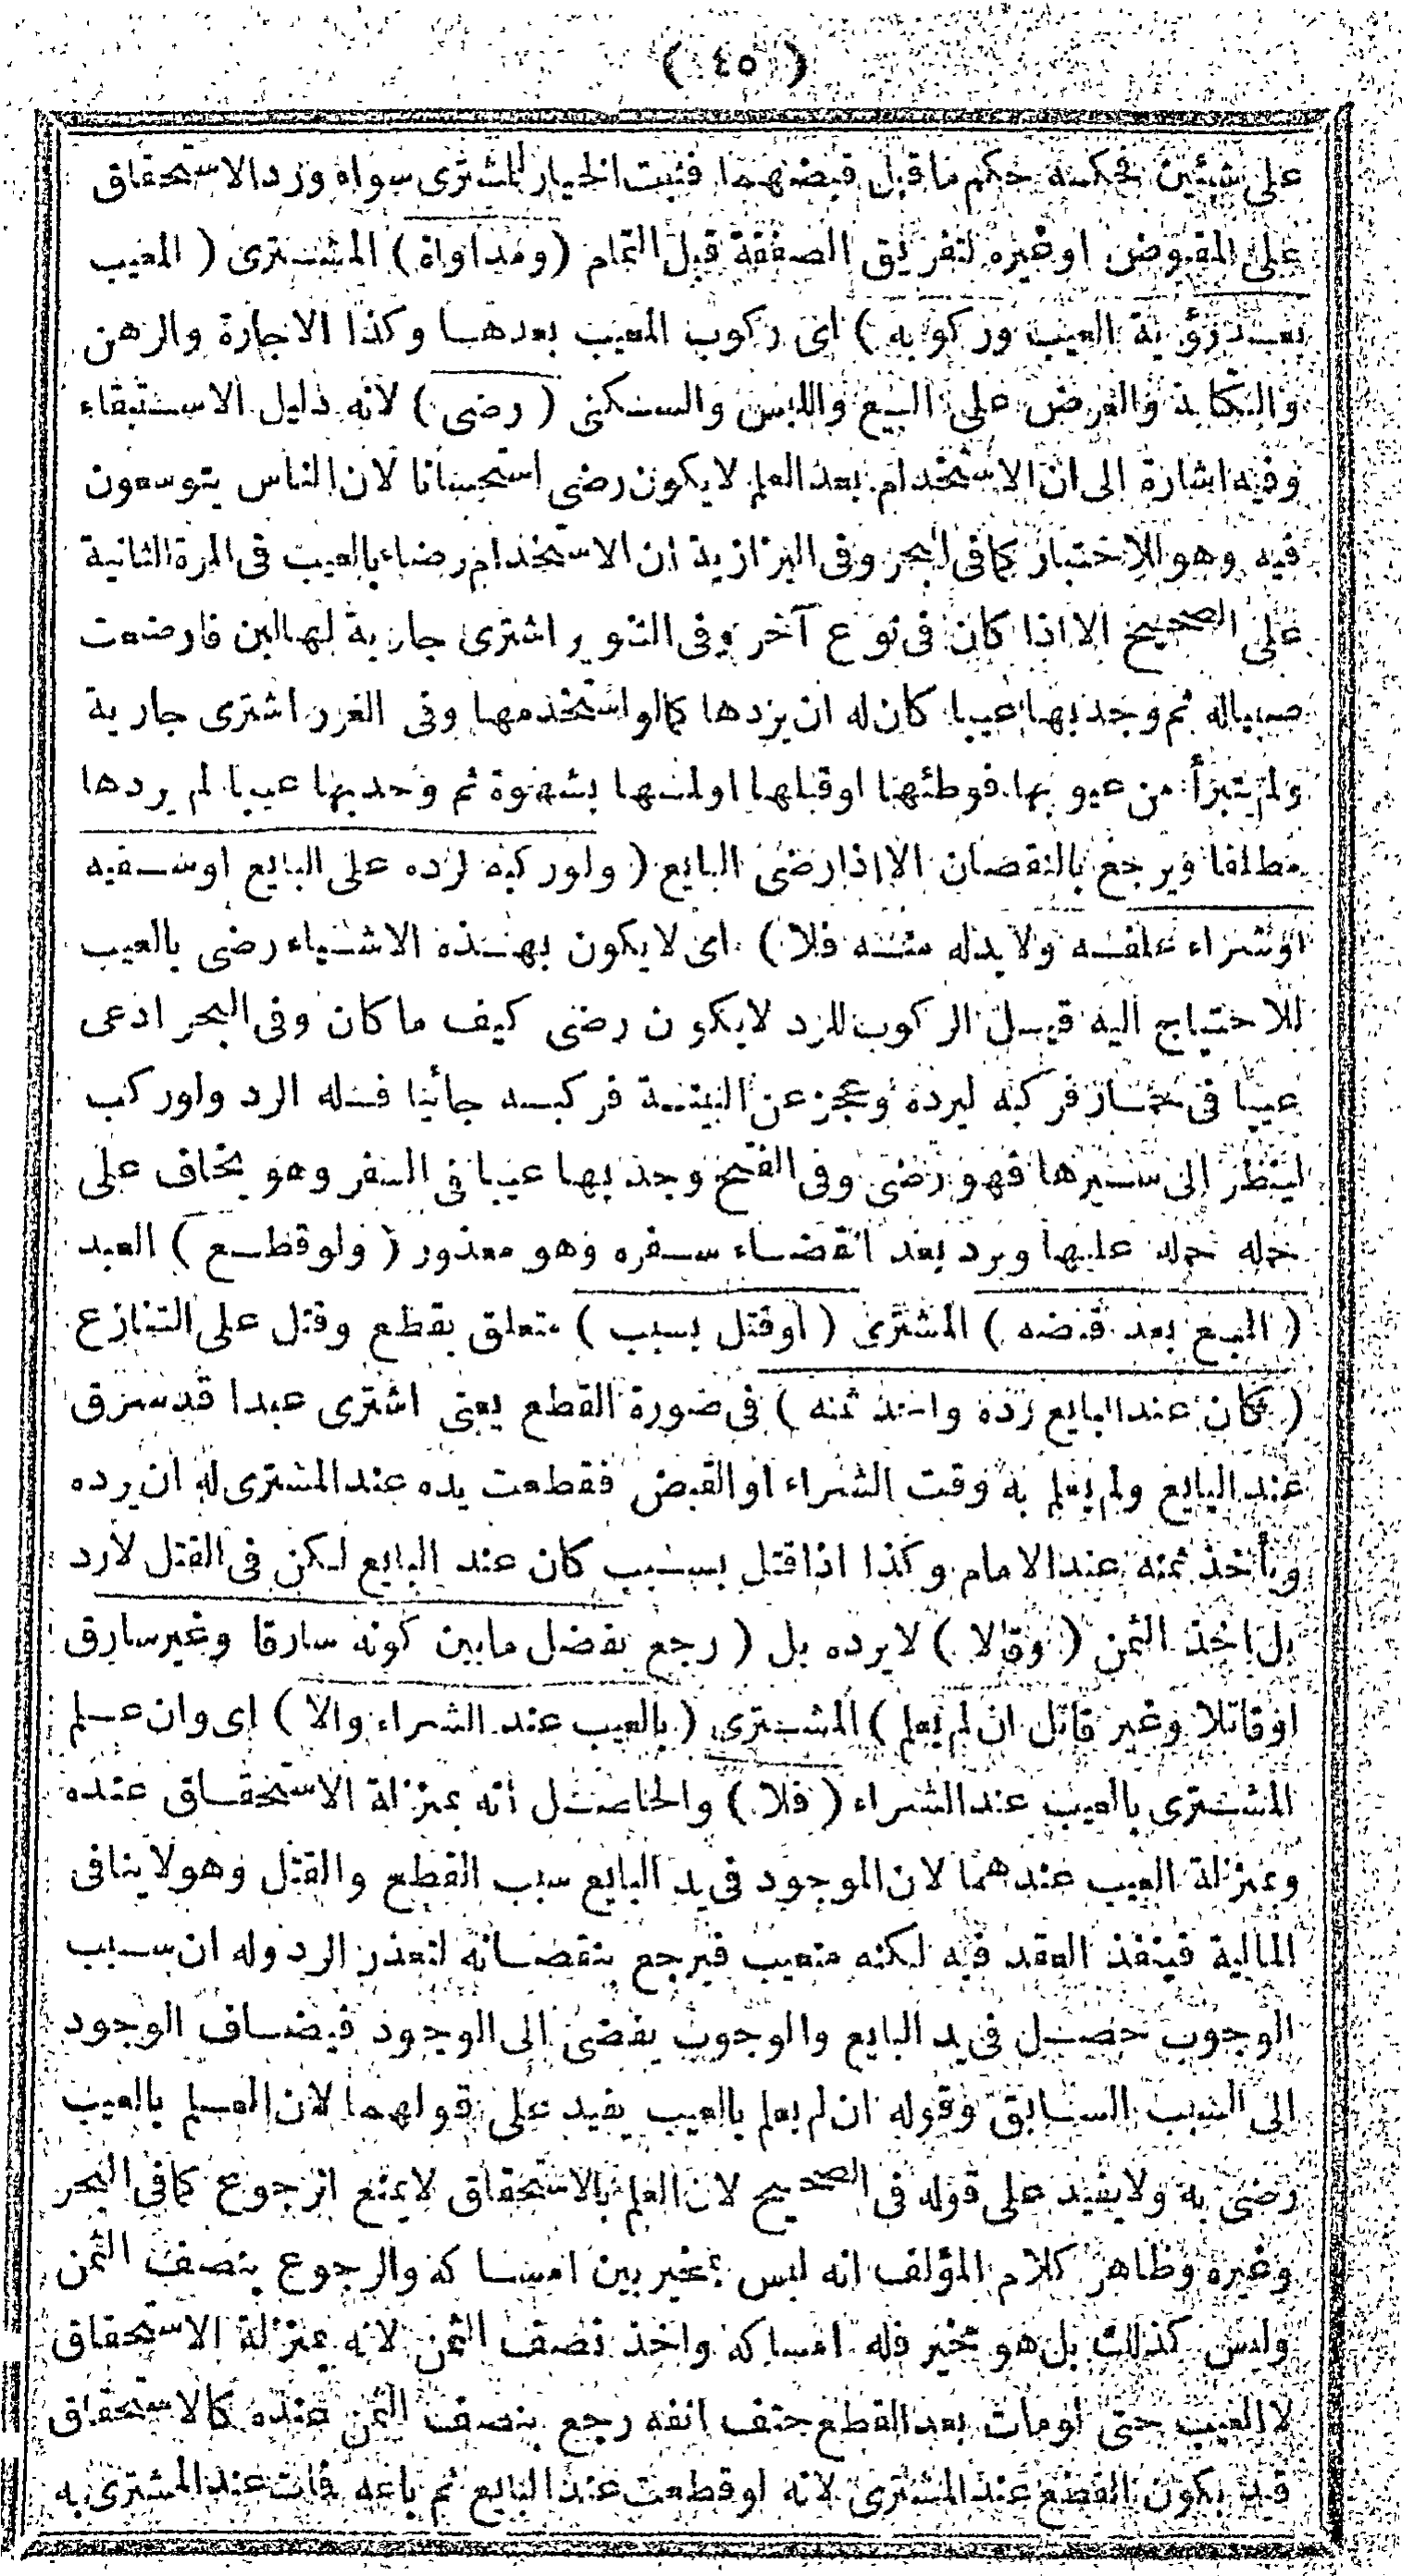 ( ٤٥ )
على شيئين فحكمه حكم ماقبل قبضهما فثبت الخيار للمشترى سواء ورد الاستحقاق
على المقبوض اوغيره لتفريق الصفقة قبل التمام (ومداواة) المشترى ( المعيب
بعد رؤية العيب وركوبه ) اى ركوب المعيب بعدها وكذا الاجارة والرهن
والكتابة والعرض على البيع واللبس والسكنى ( رضى ) لانه دليل الاستبقاء
وفيه اشارة الى ان الاستخدام بعد العلم لايكون رضى استحسانا لان الناس يتوسعون
فيه وهو للاختبار كمافى البحر وفى البزازية ان الاستخدام رضاء بالعيب فى المرة الثانية
على الصحيح الا اذا كان فى نوع آخر وفى التنوير اشترى جارية لها لبن فارضعت
صبياله ثم وجد بها عيبا كان له ان يردها كمالو استخدمها وفى الغرر اشترى جارية
ولم يتبرأ من عيوبها فوطئها اوقبلها اولمسها بشهوة ثم وجد بها عيبا لم يردها
مطلقا ويرجع بالنقصان الا اذا رضى البايع ( ولو ركبه لرده على البايع اوسقيه
اوشراء علفه ولا بدله منه فلا ) اى لايكون بهذه الاشياء رضى بالعيب
للاحتياج اليه قيل الركوب للرد لايكون رضى كيف ماكان وفى البحر ادعى
عيبا فى حمار فركبه ليرده وعجز عن البينة فركبه جائيا فله الرد ولو ركب
لينظر الى سيرها فهو رضى وفى الفتح وجد بها عيبا فى السفر وهو يخاف على
حمله حمله عليها ويرد بعد انقضاء سفره وهو معذور ( ولو قطع ) العبد
( المبيع بعد قبضه ) المشترى ( اوقتل بسبب ) متعلق بقطع وقتل على التنازع
( كان عند البايع رده واخذ ثمنه ) فى صورة القطع يعنى اشترى عبدا قد سرق
عند البايع ولم يعلم به وقت الشراء او القبض فقطعت يده عند المشترى له ان يرده
ويأخذ ثمنه عند الامام وكذا اذا قتل بسبب كان عند البايع لكن فى القتل لارد
بل اخذ الثمن ( وقالا ) لايرده بل ( رجع بفضل مابين كونه سارقا وغير سارق
اوقاتلا وغير قاتل ان لم يعلم ) المشترى ( بالعيب عند الشراء والا ) اى وان علم
المشترى بالعيب عند الشراء ( فلا ) والحاصل أنه بمنزلة الاستحقاق عنده
وبمنزلة العيب عندهما لان الموجود فى يد البايع سبب القطع والقتل وهو لاينافى
المالية فينفذ العقد فيه لكنه متعيب فيرجع بنقصانه لتعذر الرد وله ان سبب
الوجوب حصل فى يد البايع والوجوب يفضى الى الوجود فيضاف الوجود
الى السبب السابق وقوله ان لم يعلم بالعيب يفيد على قولهما لان العلم بالعيب
رضى به ولايفيد على قوله فى الصحيح لان العلم بالاستحقاق لايمنع الرجوع كمافى البحر
وغيره وظاهر كلام المؤلف انه ليس بمخير بين امساكه والرجوع بنصف الثمن
وليس كذلك بل هو مخير فله امساكه واخذ نصف الثمن لانه بمنزلة الاستحقاق
لا العيب حتى لومات بعد القطع حتف انفه رجع بنصف الثمن عنده كالاستحقاق
قيد بكون القطع عند المشترى لانه لو قطعت عند البايع ثم باعه فات عند المشترى به